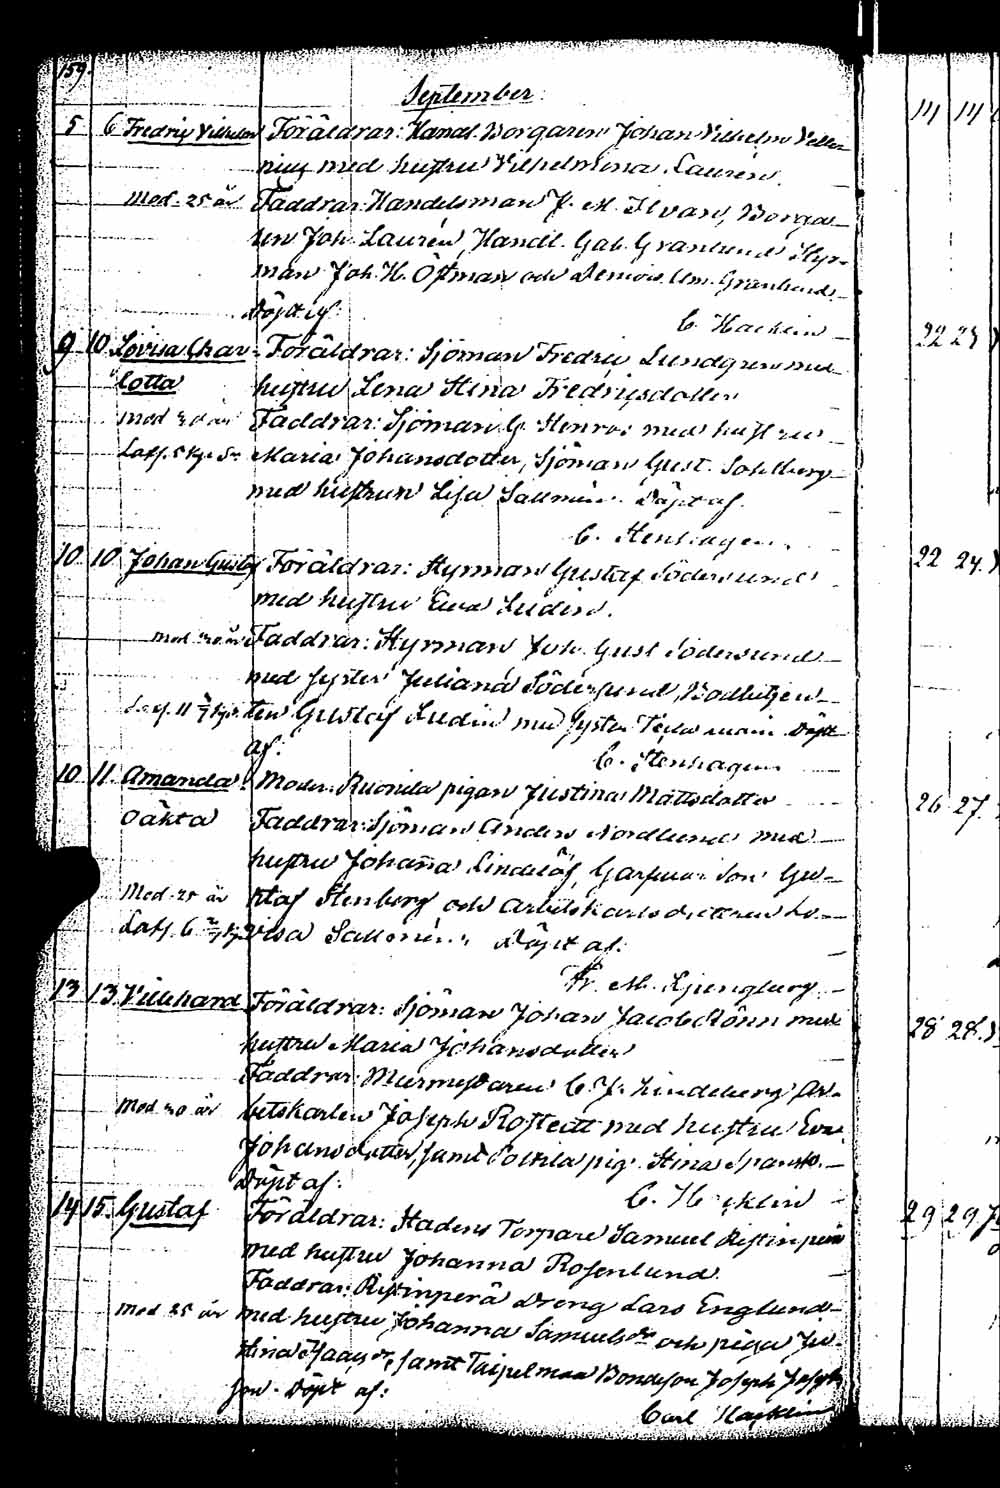 159.
September.
5 6 Fredric Vilhelm Föräldrar: Handl. Borgaren Johan Vilhelm Velle-
nius med hustru Vilhelmina Laurén.
Mod. 25 år Faddrar: Handelsman J. M. Ilvan, Borga-
ren Joh. Laurén, Handl. Gab. Granlund Styr-
man Joh. H. Östman och Demois. Um. Granlund.
Döpt af:
C. Hacklin
9 10 Lovisa Char- Föräldrar: Sjöman Fredric Lundgren med
lotta hustru Lena Stina Fredricsdotter
mod år Faddrar: Sjöman G. Stenros med hustru
Maria Johansdotter, Sjöman Gust. Sohlberg
med hustrun Lisa Sallmén. Döpt af.
C. Stenhagen.
10 10 Johan Gustaf Föräldrar: Styrman Gustaf Södersund
med hustru Eva Ludin.
mod. år Faddrar: Styrman Joh. Gust Södersund
med syster Juliana Södersund,
ten Gustaf Ludin med syster Döpt
af:
C. Stenhagen
10 11 Amanda Moder: pigan Justina Mattsdotter
Oäkta Faddrar: Sjöman Anders Nordlund med
hustru Johanna Lindelöf, Garfvare Son Gu-
Mod. 25 år staf Stenberg och arbetskarls dottren Lo-
visa Sallmén. Döpt af:
Fr. M. Ljungberg.
13 13 Villehard Föräldrar: Sjöman Johan Jacob Rönn med
hustru Maria Johansdotter
Faddrar: Murmestaren C. J. Lindeberg Ar-
Mod. 30 år betskarlen Joseph Rostedt med hustru Eva
Johansdotter, samt pig. Stina
Döpt af:
C. Hacklin
14 15. Gustaf Föräldrar: Stadens Torpare Samuel Ristinperä
med hustru Johanna Rosenlund.
Faddrar: Ristinperä Dreng Lars Englund
Mod 25 år med hustru Johanna Samuelsdr och piga Ju-
stina Isaacsdr, samt Taipelmaa Bondeson Joseph Joseph
son. Döpt af:
Carl Hacklin
14 14
22 23
22 24.
26 27.
28 28.
29 29